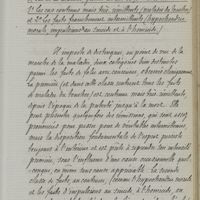 1º les cas continus mais très rémittents (maladies de l'ombre)
et 2º les faits franchement intermittents (hypochondrie
morale, impulsions au suicide et à l'homicide).
Il importe de distinguer, au point de vue de la
marche de la maladie, deux catégories bien distinctes
parmi les faits de folie avec conscience,
et dans cette classe rentrent tous les faits de
maladie du doute, est continue, mais très rémittente,
depuis l'époque de la puberté jusqu'à la mort. Elle
peut présenter quelquefois des rémissions, qui sont assez
prononcées pour passer pour de véritables intermittences,
mais la disposition fondamentale de l'esprit persiste
toujours à l'intérieur et est prête à reprendre son intensité
première, sous l'influence d'une cause occasionnelle quel-
conque, ou même sans cause appréciable. La seconde
classe de faits, au contraire, (comme l'hypochondrie morale
et les faits d'impulsions au suicide et à l'homicide, en